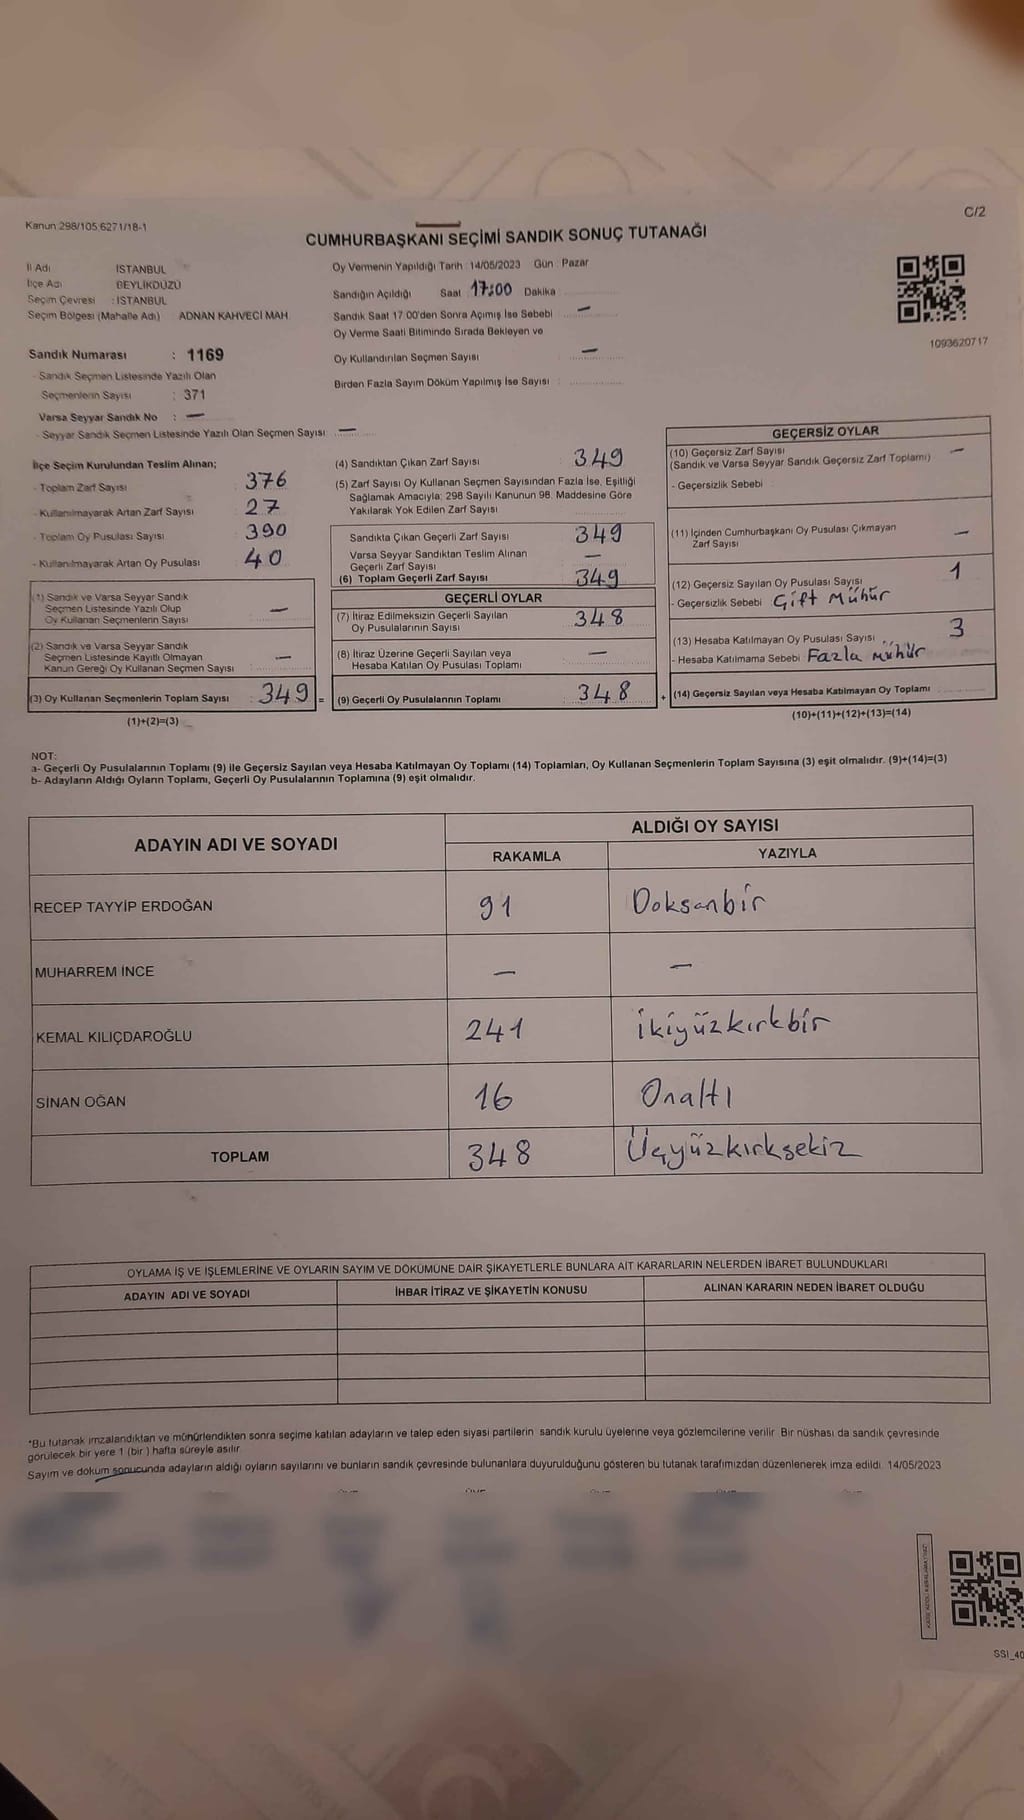 Kanun:298/105;6271/18-1
C/2
CUMHURBAŞKANI SEÇİMİ SANDIK SONUÇ TUTANAĞI
İl Adı : İSTANBUL
İlçe Adı : BEYLİKDÜZÜ
Seçim Çevresi : İSTANBUL
Seçim Bölgesi (Mahalle Adı) : ADNAN KAHVECİ MAH.
Sandık Numarası : 1169
- Sandık Seçmen Listesinde Yazılı Olan
Seçmenlerin Sayısı : 371
Varsa Seyyar Sandık No : —
- Seyyar Sandık Seçmen Listesinde Yazılı Olan Seçmen Sayısı : —
Oy Vermenin Yapıldığı Tarih : 14/05/2023 Gün : Pazar
Sandığın Açıldığı Saat 17:00 Dakika
Sandık Saat 17.00'den Sonra Açımış İse Sebebi —
Oy Verme Saati Bitiminde Sırada Bekleyen ve
Oy Kullandırılan Seçmen Sayısı —
Birden Fazla Sayım Döküm Yapılmış İse Sayısı :
1093620717
İlçe Seçim Kurulundan Teslim Alınan;
- Toplam Zarf Sayısı 376
- Kullanılmayarak Artan Zarf Sayısı 27
- Toplam Oy Pusulası Sayısı 390
- Kullanılmayarak Artan Oy Pusulası 40
(1) Sandık ve Varsa Seyyar Sandık
Seçmen Listesinde Yazılı Olup
Oy Kullanan Seçmenlerin Sayısı —
(2) Sandık ve Varsa Seyyar Sandık
Seçmen Listesinde Kayıtlı Olmayan
Kanun Gereği Oy Kullanan Seçmen Sayısı —
(3) Oy Kullanan Seçmenlerin Toplam Sayısı 349 =
(1)+(2)=(3)
(4) Sandıktan Çıkan Zarf Sayısı : 349
(5) Zarf Sayısı Oy Kullanan Seçmen Sayısından Fazla İse, Eşitliği
Sağlamak Amacıyla; 298 Sayılı Kanunun 98. Maddesine Göre
Yakılarak Yok Edilen Zarf Sayısı
Sandıkta Çıkan Geçerli Zarf Sayısı 349
Varsa Seyyar Sandıktan Teslim Alınan
Geçerli Zarf Sayısı —
(6) Toplam Geçerli Zarf Sayısı 349
GEÇERLİ OYLAR
(7) İtiraz Edilmeksizin Geçerli Sayılan
Oy Pusulalarının Sayısı 348
(8) İtiraz Üzerine Geçerli Sayılan veya
Hesaba Katılan Oy Pusulası Toplamı —
(9) Geçerli Oy Pusulalarının Toplamı 348 +
GEÇERSİZ OYLAR
(10) Geçersiz Zarf Sayısı
(Sandık ve Varsa Seyyar Sandık Geçersiz Zarf Toplamı) —
- Geçersizlik Sebebi :
(11) İçinden Cumhurbaşkanı Oy Pusulası Çıkmayan
Zarf Sayısı —
(12) Geçersiz Sayılan Oy Pusulası Sayısı 1
- Geçersizlik Sebebi Çift Mühür
(13) Hesaba Katılmayan Oy Pusulası Sayısı 3
- Hesaba Katılmama Sebebi Fazla Mühür
(14) Geçersiz Sayılan veya Hesaba Katılmayan Oy Toplamı
(10)+(11)+(12)+(13)=(14)
NOT:
a- Geçerli Oy Pusulalarının Toplamı (9) ile Geçersiz Sayılan veya Hesaba Katılmayan Oy Toplamı (14) Toplamları, Oy Kullanan Seçmenlerin Toplam Sayısına (3) eşit olmalıdır. (9)+(14)=(3)
b- Adayların Aldığı Oyların Toplamı, Geçerli Oy Pusulalarının Toplamına (9) eşit olmalıdır.
ADAYIN ADI VE SOYADI
ALDIĞI OY SAYISI
RAKAMLA YAZIYLA
RECEP TAYYİP ERDOĞAN 91 Doksanbir
MUHARREM İNCE — —
KEMAL KILIÇDAROĞLU 241 ikiyüzkırkbir
SİNAN OĞAN 16 Onaltı
TOPLAM 348 Üçyüzkırksekiz
OYLAMA İŞ VE İŞLEMLERİNE VE OYLARIN SAYIM VE DÖKÜMÜNE DAİR ŞİKAYETLERLE BUNLARA AİT KARARLARIN NELERDEN İBARET BULUNDUKLARI
ADAYIN ADI VE SOYADI İHBAR İTİRAZ VE ŞİKAYETİN KONUSU ALINAN KARARIN NEDEN İBARET OLDUĞU
*Bu tutanak imzalandıktan ve mühürlendikten sonra seçime katılan adayların ve talep eden siyasi partilerin sandık kurulu üyelerine veya gözlemcilerine verilir. Bir nüshası da sandık çevresinde
görülecek bir yere 1 (bir ) hafta süreyle asılır.
Sayım ve döküm sonucunda adayların aldığı oyların sayılarını ve bunların sandık çevresinde bulunanlara duyurulduğunu gösteren bu tutanak tarafımızdan düzenlenerek imza edildi. 14/05/2023
SSI_40